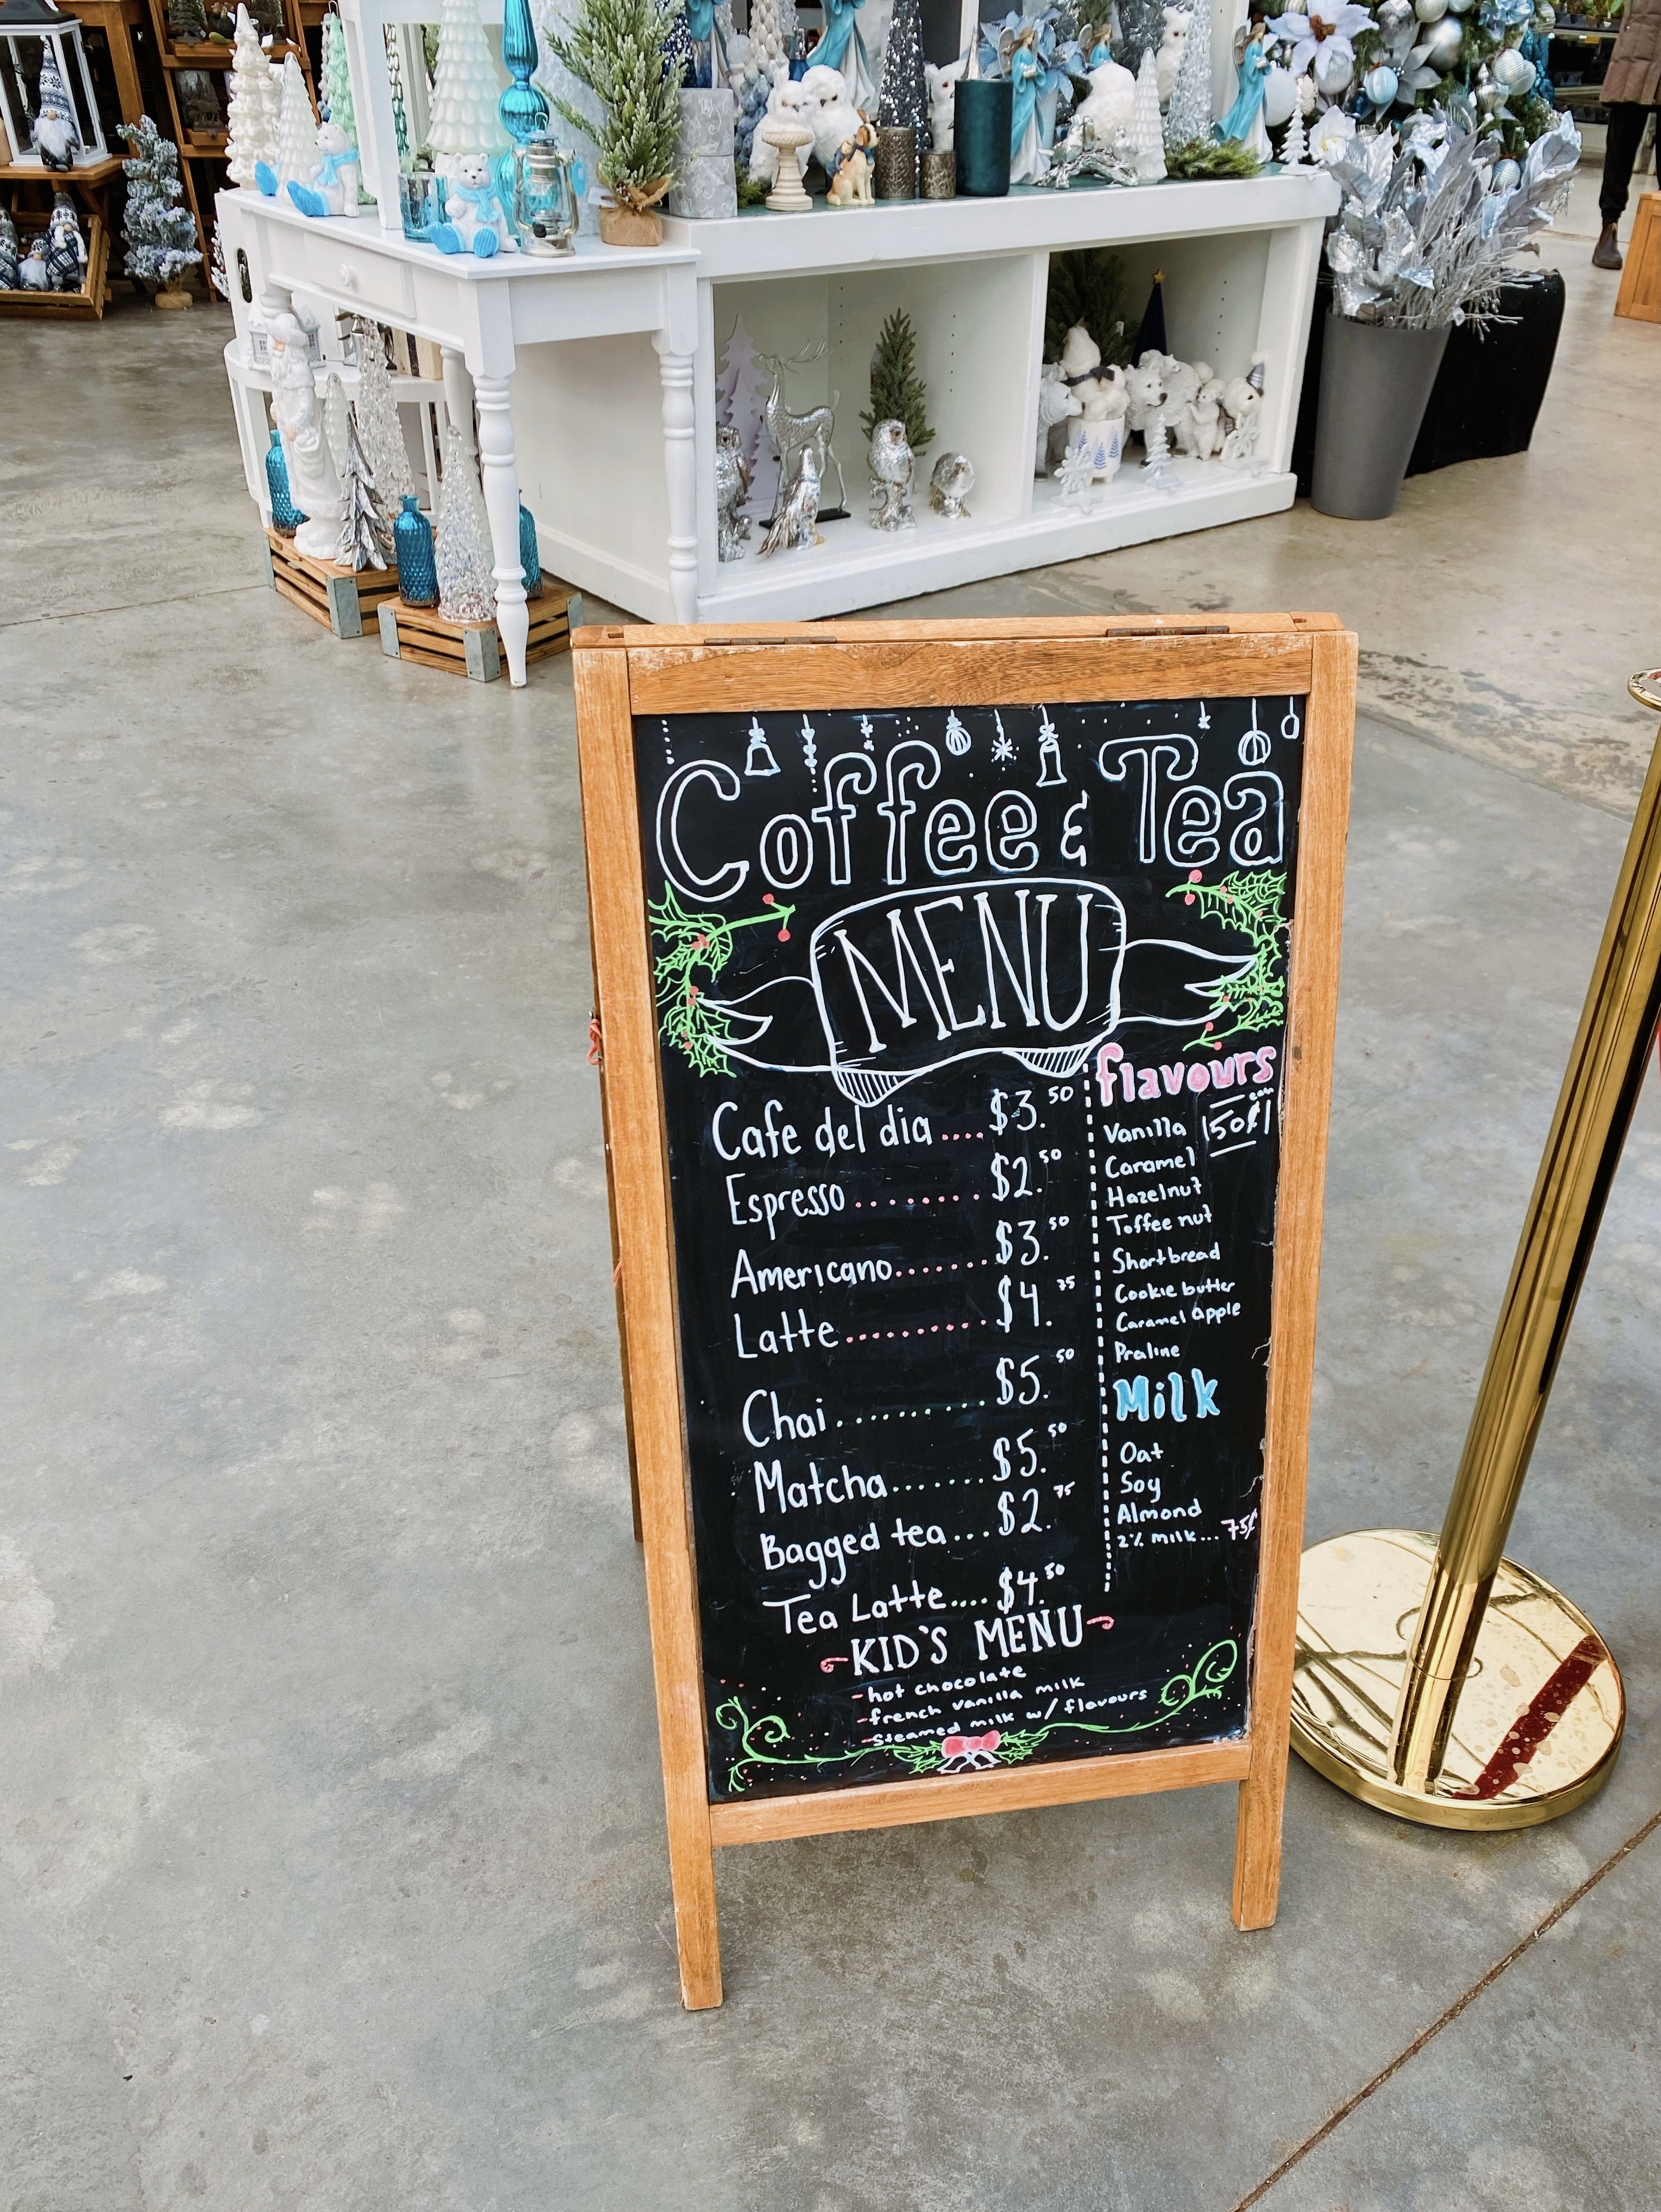 Coffee & Tea
MENU
Cafe del dia .... $3.50
Espresso ........ $2.50
Americano ....... $3.50
Latte .......... $4.75
Chai .......... $5.50
Matcha ....... $5.50
Bagged tea ... $2.75
Tea Latte .... $4.50
flavours
50¢ each
Vanilla
Caramel
Hazelnut
Toffee nut
Shortbread
Cookie butter
Caramel apple
Praline
Milk
Oat
Soy
Almond
2% milk... 75¢
KID'S MENU
-hot chocolate
-french vanilla milk
-steamed milk w/ flavours